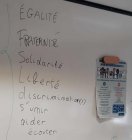 ÉGALITÉ
FRATERNITÉ
Solidarité
Liberté
discrimination(s)
s'unir
aider
écouter